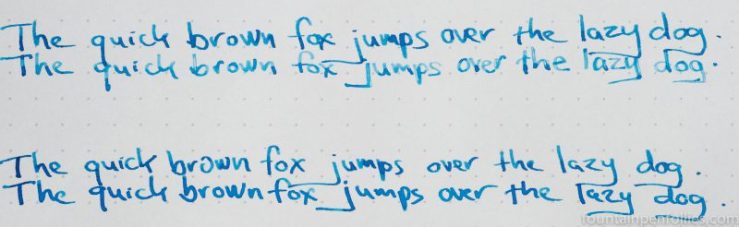 The quick brown fox jumps over the lazy dog.
The quick brown fox jumps over the lazy dog.
The quick brown fox jumps over the lazy dog.
The quick brown fox jumps over the lazy dog.
fountainpenfollies.com